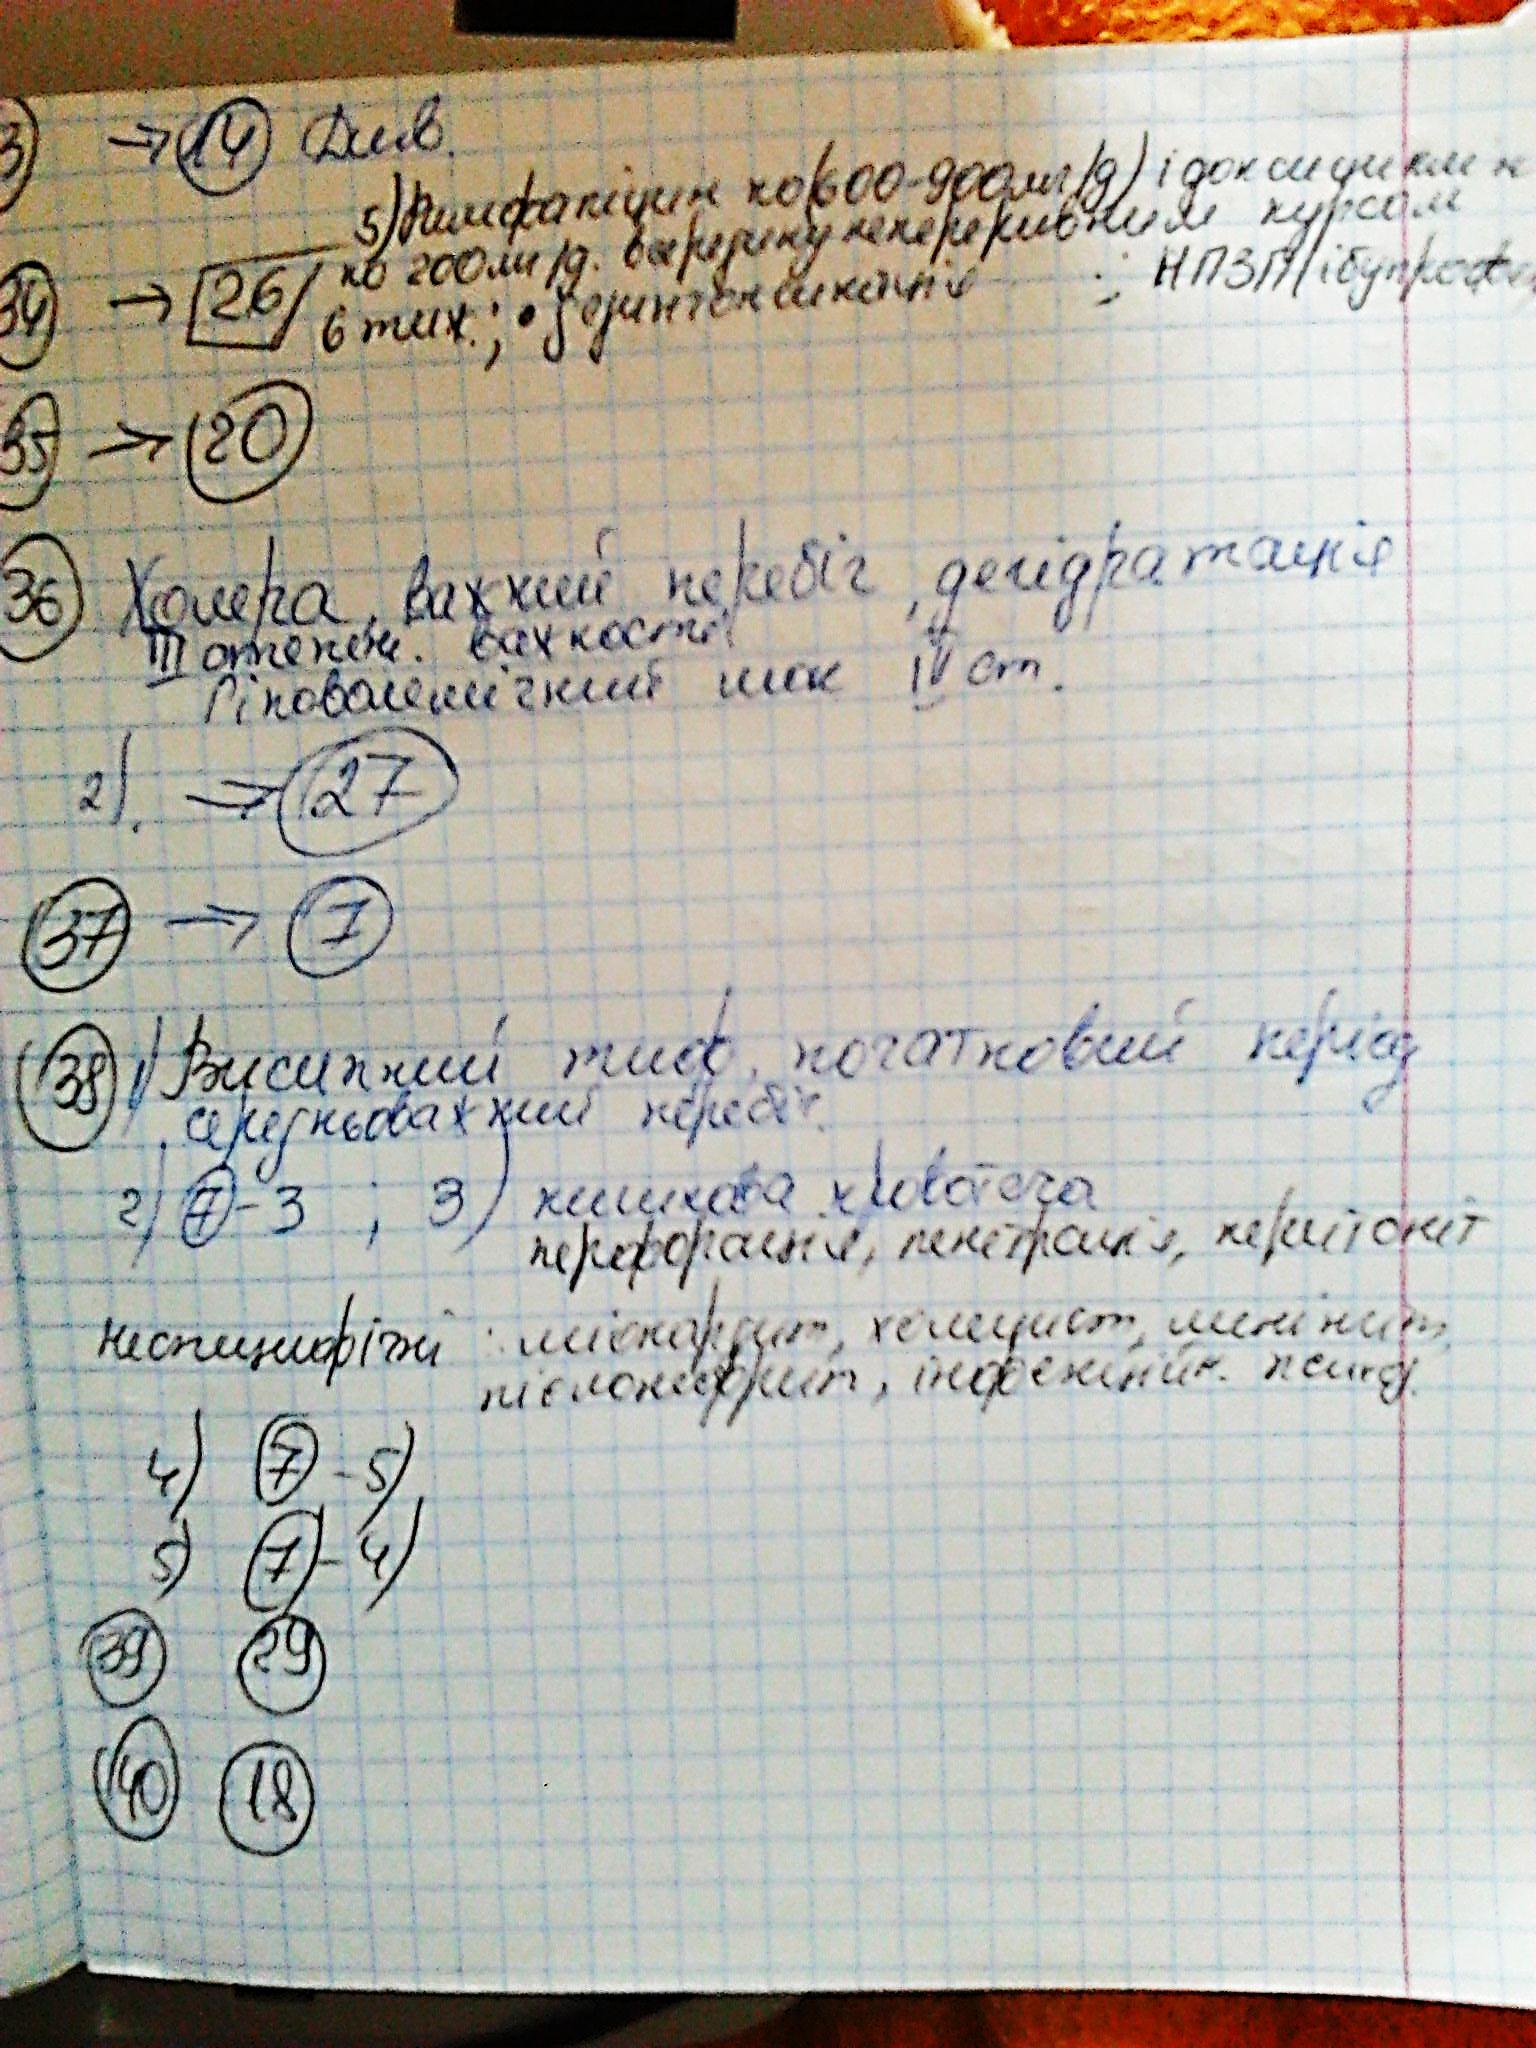 3 → 14 Див.
5) Римфапіцин по (600-900мг/д) і доксициклін
34 → 26 по 200мг/д. всередину неперервним курсом
6 тиж.; • дезинтоксикація ; НПЗП (ібупрофен
35 → 20
36 Холера, важкий перебіг, дегідратація
III ступень. важкості
Гіповолемічний шок IV ст.
2). → 27
37 → 7
38 1) Висипний тиф, початковий період
середньоважкий перебіг.
2) 7-3 ; 3) кишкова кровотеча
перфорація, пенетрація, перитоніт
Неспицифічні : міокардит, холецист, менінгит,
пієлонефрит, інфекційн. психоз.
4) 7 - 5)
5) 7 - 4)
39 29
40 18